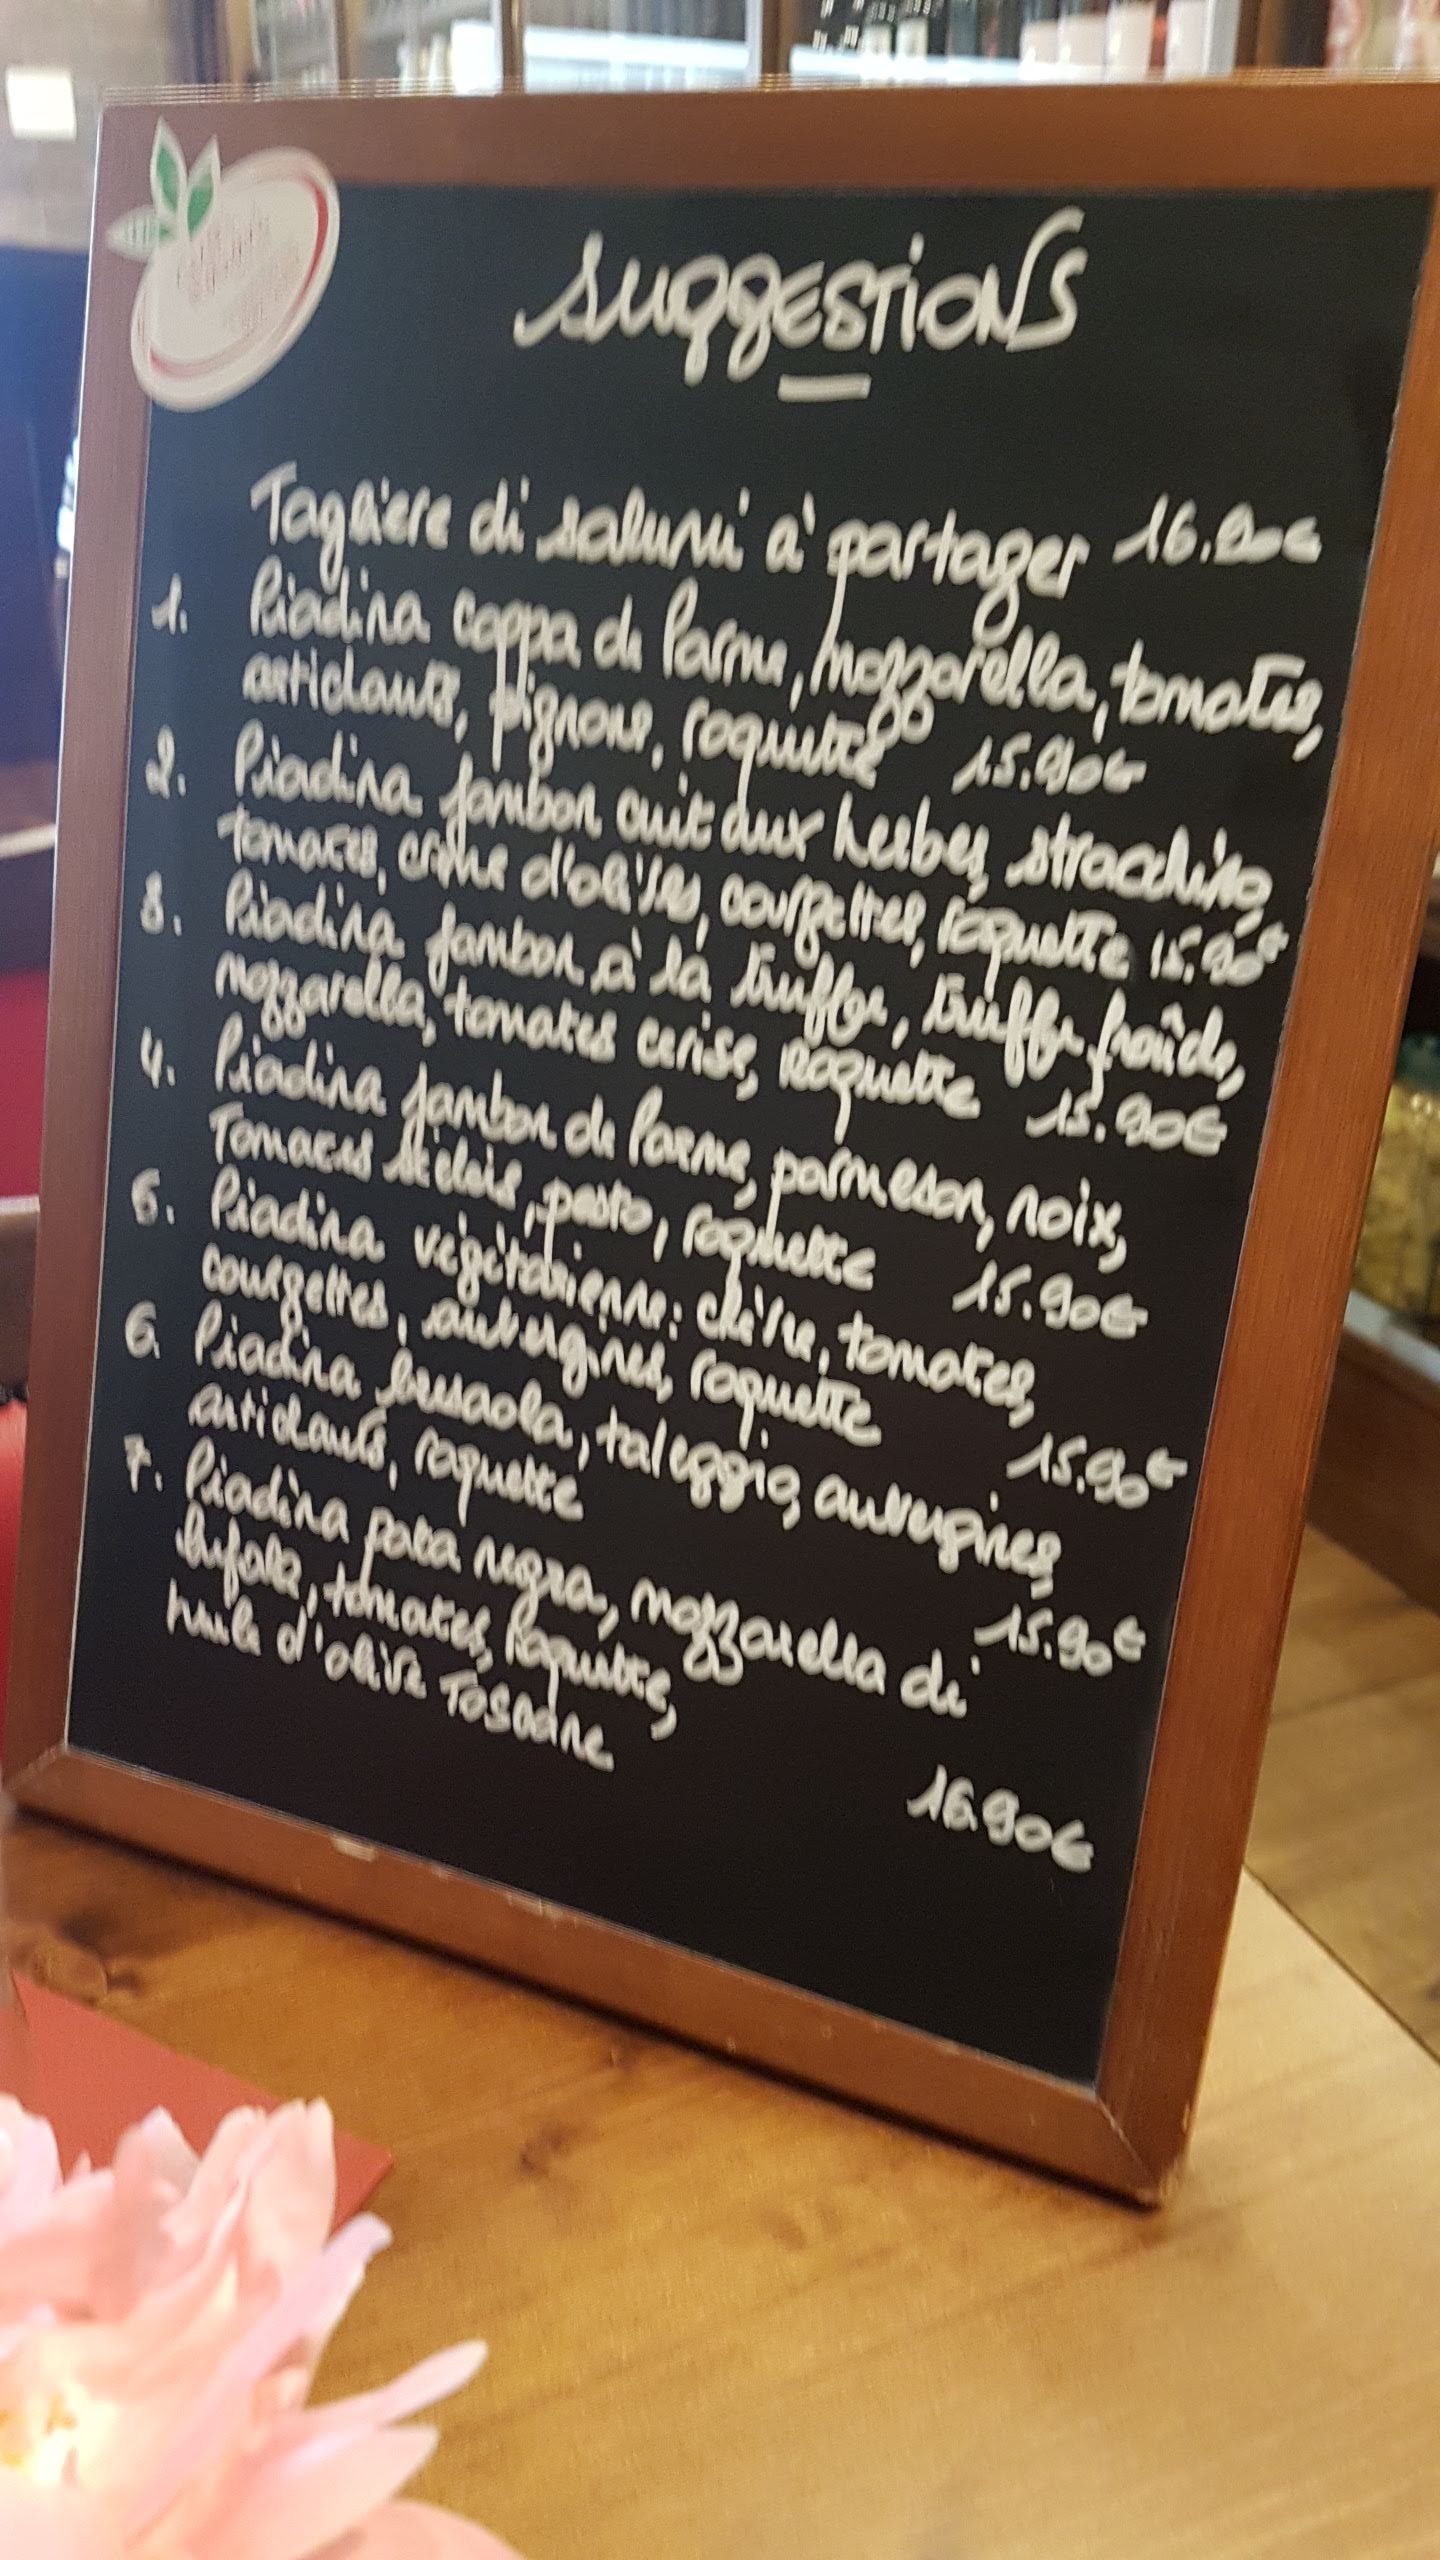 SUGGESTIONS
Tagliere di salumi à partager 16.90€
1. Piadina coppa di Parme, mozzarella, tomates,
artichauts, pignons, roquette 15.90€
2. Piadina jambon cuit aux herbes, stracchino,
tomates, crème d'olives, courgettes, roquette 15.90€
3. Piadina jambon à la truffe, truffe fraîche,
mozzarella, tomates cerise, roquette 15.90€
4. Piadina jambon de Parme, parmesan, noix,
Tomates séchés, pesto, roquette 15.90€
5. Piadina végétarienne: chèvre, tomates,
courgettes, aubergines, roquette 15.90€
6. Piadina bresaola, taleggio, aubergines,
artichauts, roquette 15.90€
7. Piadina pata negra, mozzarella di
bufala, tomates, roquette,
huile d'olive Toscane
16.90€